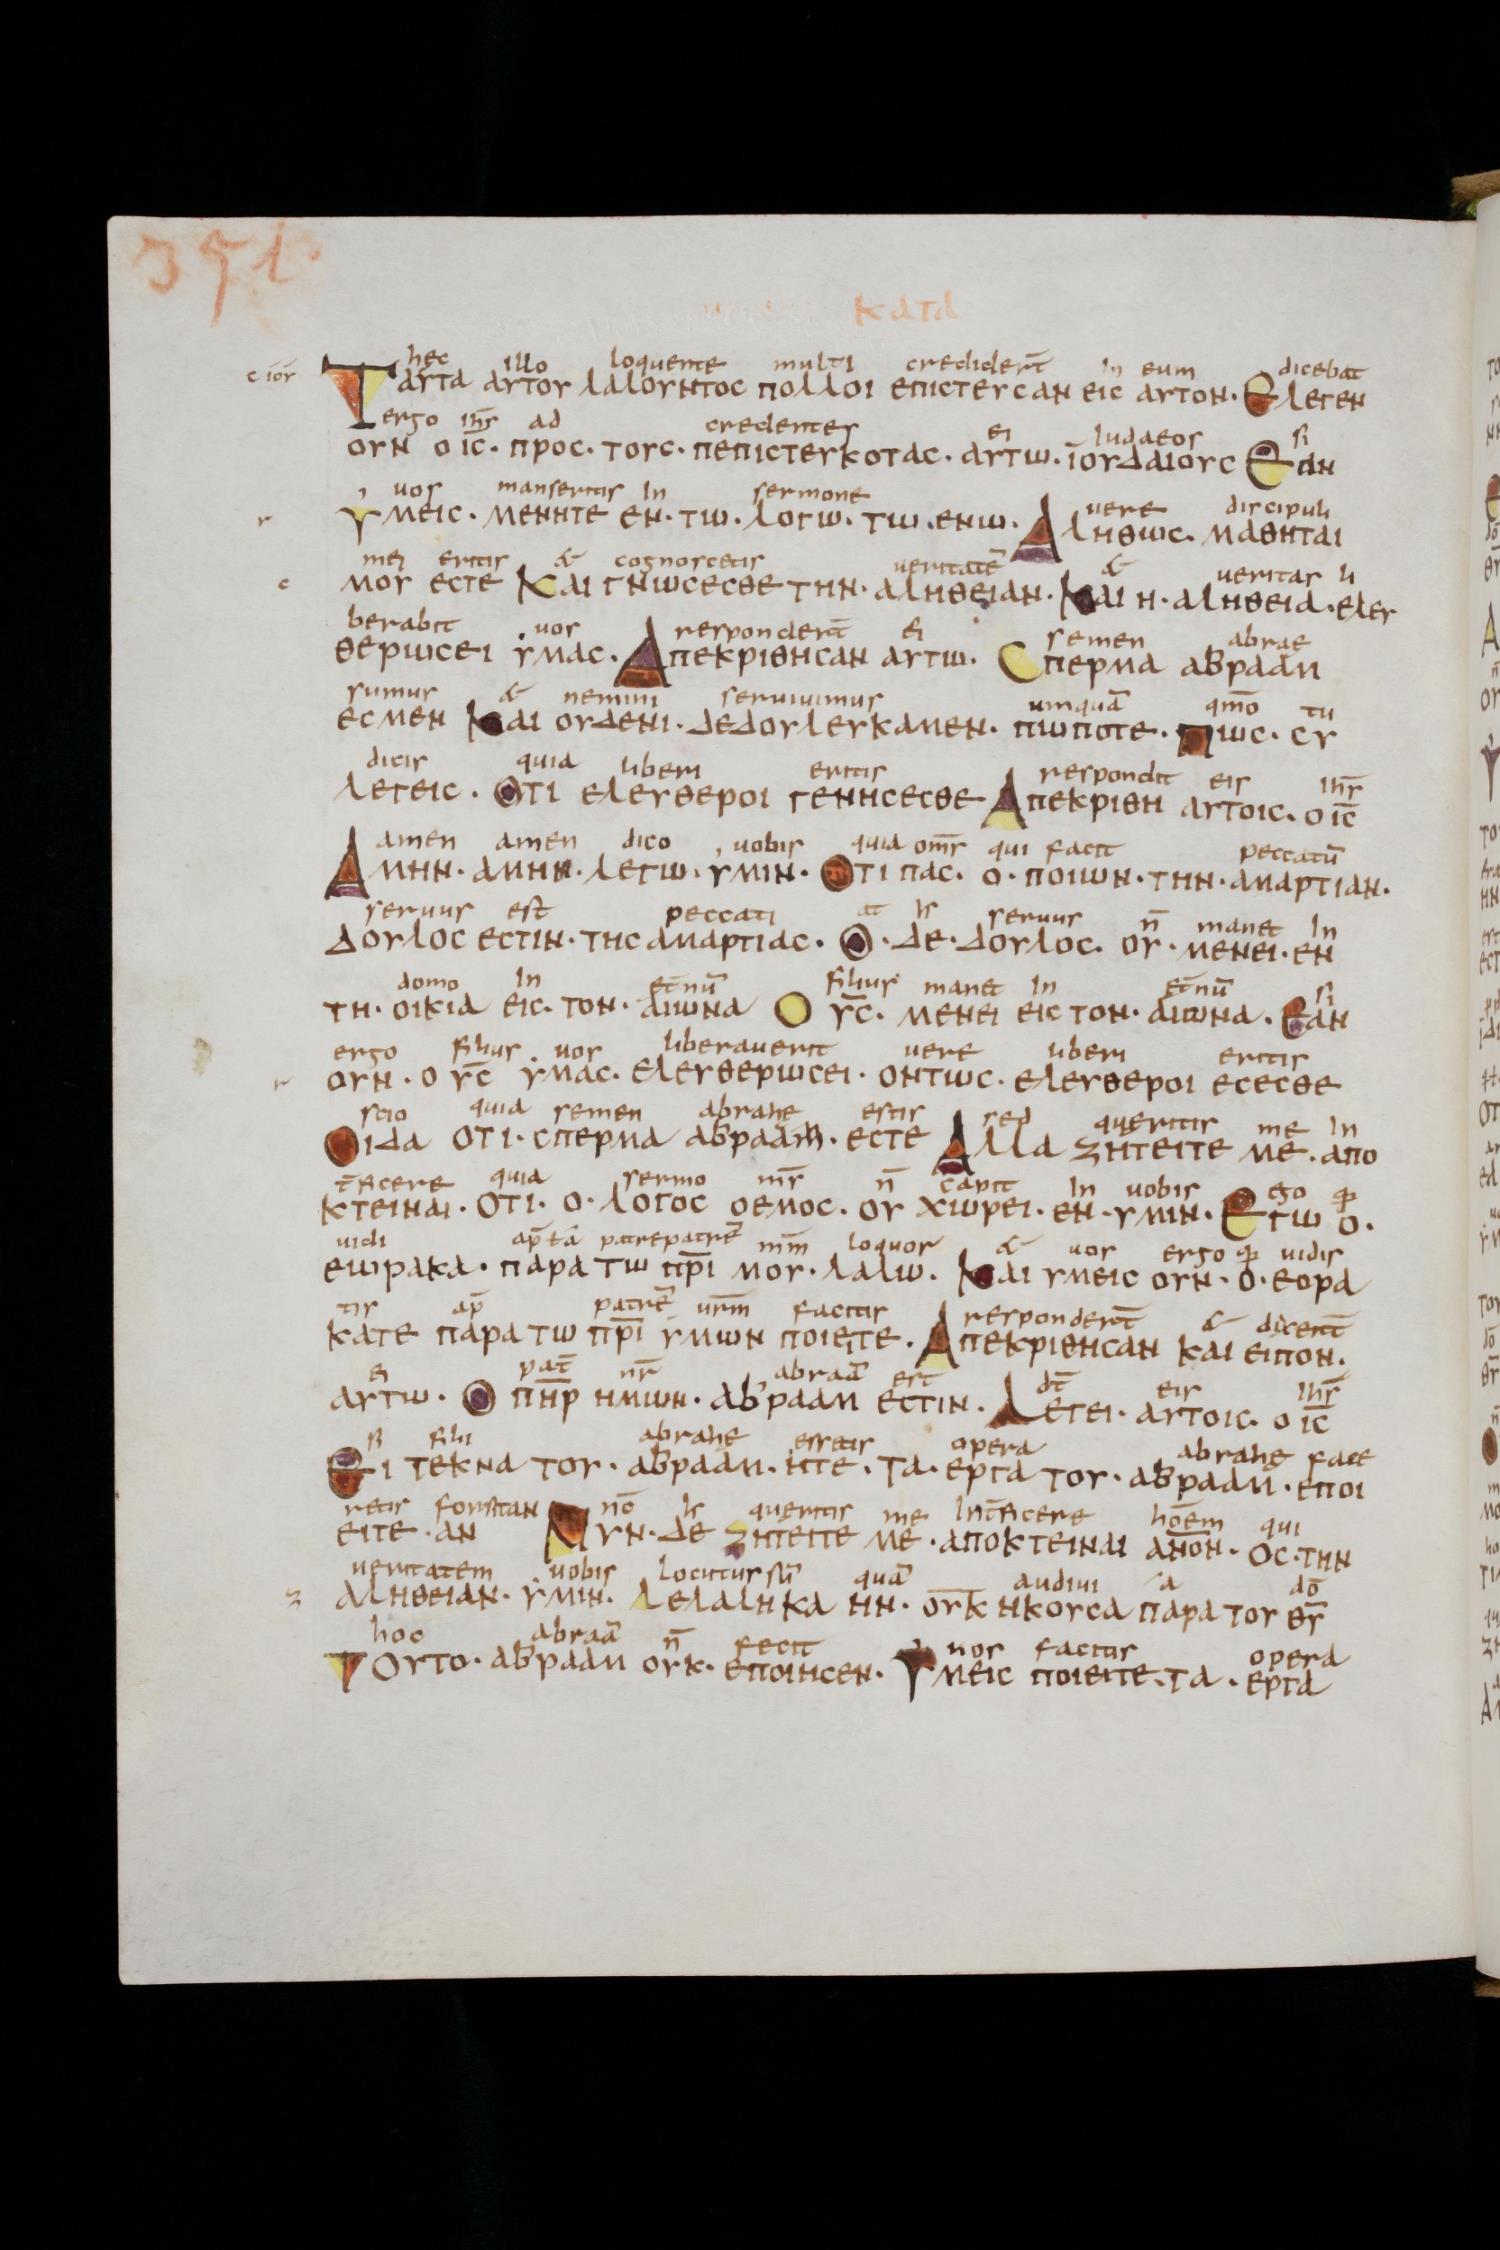 351
ΚΑΤΑ
hec illo loquente multi crediderт̄ In eum dicebat
ΤΑΥΤΑ ΑΥΤΟΥ ΛΑΛΟΥΝΤΟC ΠΟΛΛΟΙ ΕΠΙCΤΕΥCΑΝ ΕΙC ΑΥΤΟΝ· ΕΛΕΓΕΝ
ergo ih̄s ad credentes ei Iudaeos si
ΟΥΝ Ο ΙC̄· ΠΡΟC· ΤΟΥC· ΠΕΠΙCΤΕΥΚΟΤΑC· ΑΥΤΩ· ΪΟΥΔΑΙΟΥC ΕΑΝ
uos manseritis In sermone uere discipuli
ΥΜΕΙC· ΜΕΝΗΤΕ ΕΝ· ΤΩ· ΛΟΓΩ· ΤΩ· ΕΜΩ· ΑΛΗΘΩC· ΜΑΘΗΤΑΙ
mei eritis & cognoscetis ueritatē & ueritas li
ΜΟΥ ΕCΤΕ ΚΑΙ ΓΝΩCΕCΘΕ ΤΗΝ· ΑΛΗΘΕΙΑΝ· ΚΑΙ Η· ΑΛΗΘΕΙΑ· ΕΛΕΥ
berabit uos respondert̄ ei semen abrae
ΘΕΡΩCΕΙ ΥΜΑC· ΑΠΕΚΡΙΘΗCΑΝ ΑΥΤΩ· CΠΕΡΜΑ ΑΒΡΑΑΜ
sumus & nemini seruiuimus umquā qm̄o tu
ΕCΜΕΝ ΚΑΙ ΟΥΔΕΝΙ· ΔΕΔΟΥΛΕΥΚΑΜΕΝ· ΠΩΠΟΤΕ· ΠΩC· CΥ
dicis quia liberi eritis respondit eis ih̄s
ΛΕΓΕΙC· ΟΤΙ ΕΛΕΥΘΕΡΟΙ ΓΕΝΗCΕCΘΕ ΑΠΕΚΡΙΘΗ ΑΥΤΟΙC· Ο ΙC̄
amen amen dico uobis quia om̄s qui facit peccatū
ΑΜΗΝ· ΑΜΗΝ· ΛΕΓΩ· ΥΜΙΝ· ΟΤΙ ΠΑC· Ο· ΠΟΙΩΝ· ΤΗΝ· ΑΜΑΡΤΙΑΝ·
seruus est peccati seruus n̄ manet In
ΔΟΥΛΟC ΕCΤΙΝ· ΤΗC ΑΜΑΡΤΙΑC· Ο· ΔΕ· ΔΟΥΛΟC· ΟΥ· ΜΕΝΕΙ· ΕΝ
domo In et̄nū filius manet In et̄nū si
ΤΗ· ΟΙΚΙΑ ΕΙC· ΤΟΝ· ΑΙΩΝΑ Ο ΥC̄· ΜΕΝΕΙ ΕΙC ΤΟΝ· ΑΙΩΝΑ· ΕΑΝ
ergo filius uos liberauerit uere liberi eritis
ΟΥΝ· Ο ΥC̄ ΥΜΑC· ΕΛΕΥΘΕΡΩCΕΙ· ΟΝΤΩC· ΕΛΕΥΘΕΡΟΙ ΕCΕCΘΕ
scio quia semen abrahe estis sed queritis me In
ΟΙΔΑ ΟΤΙ· CΠΕΡΜΑ ΑΒΡΑΑΜ· ΕCΤΕ ΑΛΛΑ ΖΗΤΕΙΤΕ ΜΕ· ΑΠΟ
t̄ficere quia sermo m̄s n̄ capit In uobis ego
ΚΤΕΙΝΑΙ· ΟΤΙ· Ο· ΛΟΓΟC ΟΕΜΟC· ΟΥ ΧΩΡΕΙ· ΕΝ· ΥΜΙΝ· ΕΓΩ Ο·
uidi patrepatrē loquor & uos ergo uidis
ΕΩΡΑΚΑ· ΠΑΡΑ ΤΩ ΠΡ̄Ι ΜΟΥ· ΛΑΛΩ· ΚΑΙ ΥΜΕΙC ΟΥΝ· Ο· ΕΟΡΑ
tis ap̄ patrē ur̄m facitis respondert̄ & dixert̄
ΚΑΤΕ ΠΑΡΑ ΤΩ ΠΡ̄Ι ΥΜΩΝ ΠΟΙΕΙΤΕ· ΑΠΕΚΡΙΘΗCΑΝ ΚΑΙ ΕΙΠΟΝ·
ei pat̄ nr̄ abraā est dt̄ eis ih̄s
ΑΥΤΩ· Ο ΠΗ̄Ρ ΗΜΩΝ· ΑΒΡΑΑΜ ΕCΤΙΝ· ΛΕΓΕΙ· ΑΥΤΟΙC· Ο ΙC̄
si filii abrahe essetis opera abrahe face
ΕΙ ΤΕΚΝΑ ΤΟΥ· ΑΒΡΑΑΜ· ΗΤΕ· ΤΑ· ΕΡΓΑ ΤΟΥ· ΑΒΡΑΑΜ· ΕΠΟΙ
retis forsitan queritis me Int̄ficere hoēm qui
ΕΙΤΕ· ΑΝ ΝΥΝ· ΔΕ ΖΗΤΕΙΤΕ ΜΕ· ΑΠΟΚΤΕΙΝΑΙ ΑΝ̄ΟΝ· ΟC· ΤΗΝ
ueritatem uobis locutus sū quā audiui a dō
ΑΛΗΘΕΙΑΝ· ΥΜΙΝ· ΛΕΛΑΛΗΚΑ ΗΝ· ΟΥΚ ΗΚΟΥCΑ ΠΑΡΑ ΤΟΥ ΘῩ
hoc abraā n̄ fecit uos facitis opera
ΤΟΥΤΟ· ΑΒΡΑΑΜ ΟΥΚ· ΕΠΟΙΗCΕΝ· ΥΜΕΙC ΠΟΙΕΙΤΕ· ΤΑ· ΕΡΓΑ